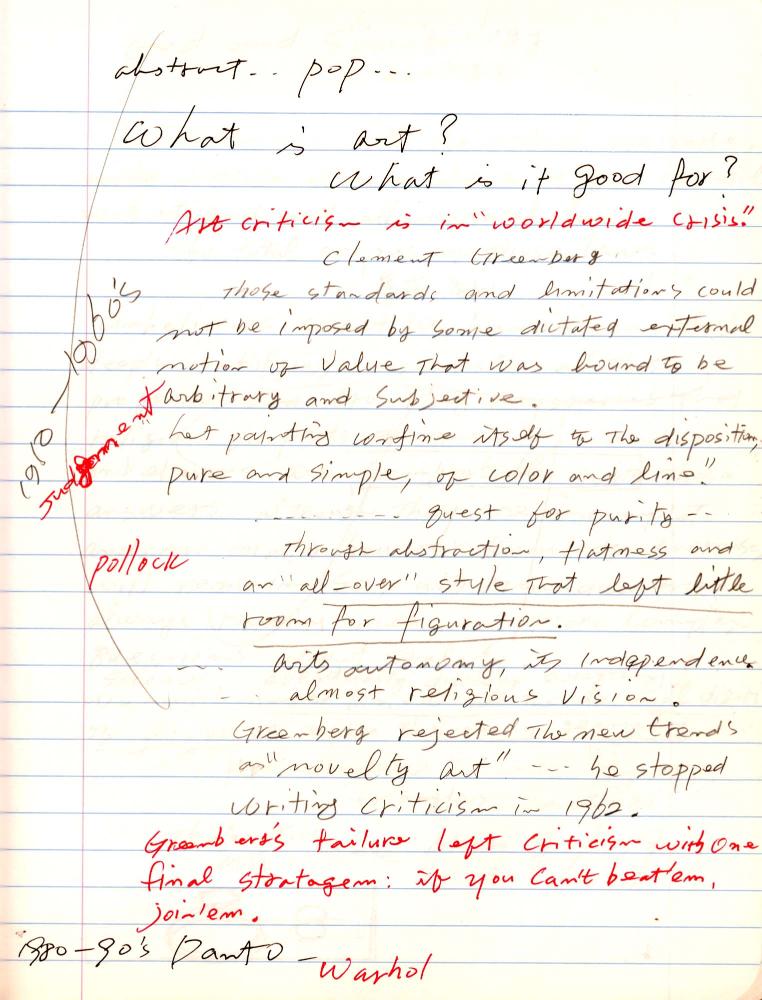 abstract.. pop...
What is art?
What is it good for?
Art criticism is in "worldwide crisis."
Clement Greenberg
1910 — 1960's
Those standards and limitations could
not be imposed by some dictated external
notion of value that was bound to be
arbitrary and subjective.
Judgement
Let painting confine itself to the disposition,
pure and simple, of color and line."
---------- quest for purity --
Pollock
Through abstraction, flatness and
an "all-over" style that left little
room for figuration.
.... arts autonomy, its independence
-- almost religious vision.
Greenberg rejected the new trends
as "novelty art" --- he stopped
writing criticism in 1962.
Greenberg's failure left criticism with one
final stratagem: if you can't beat'em,
join'em.
1980-90's Danto - Warhol